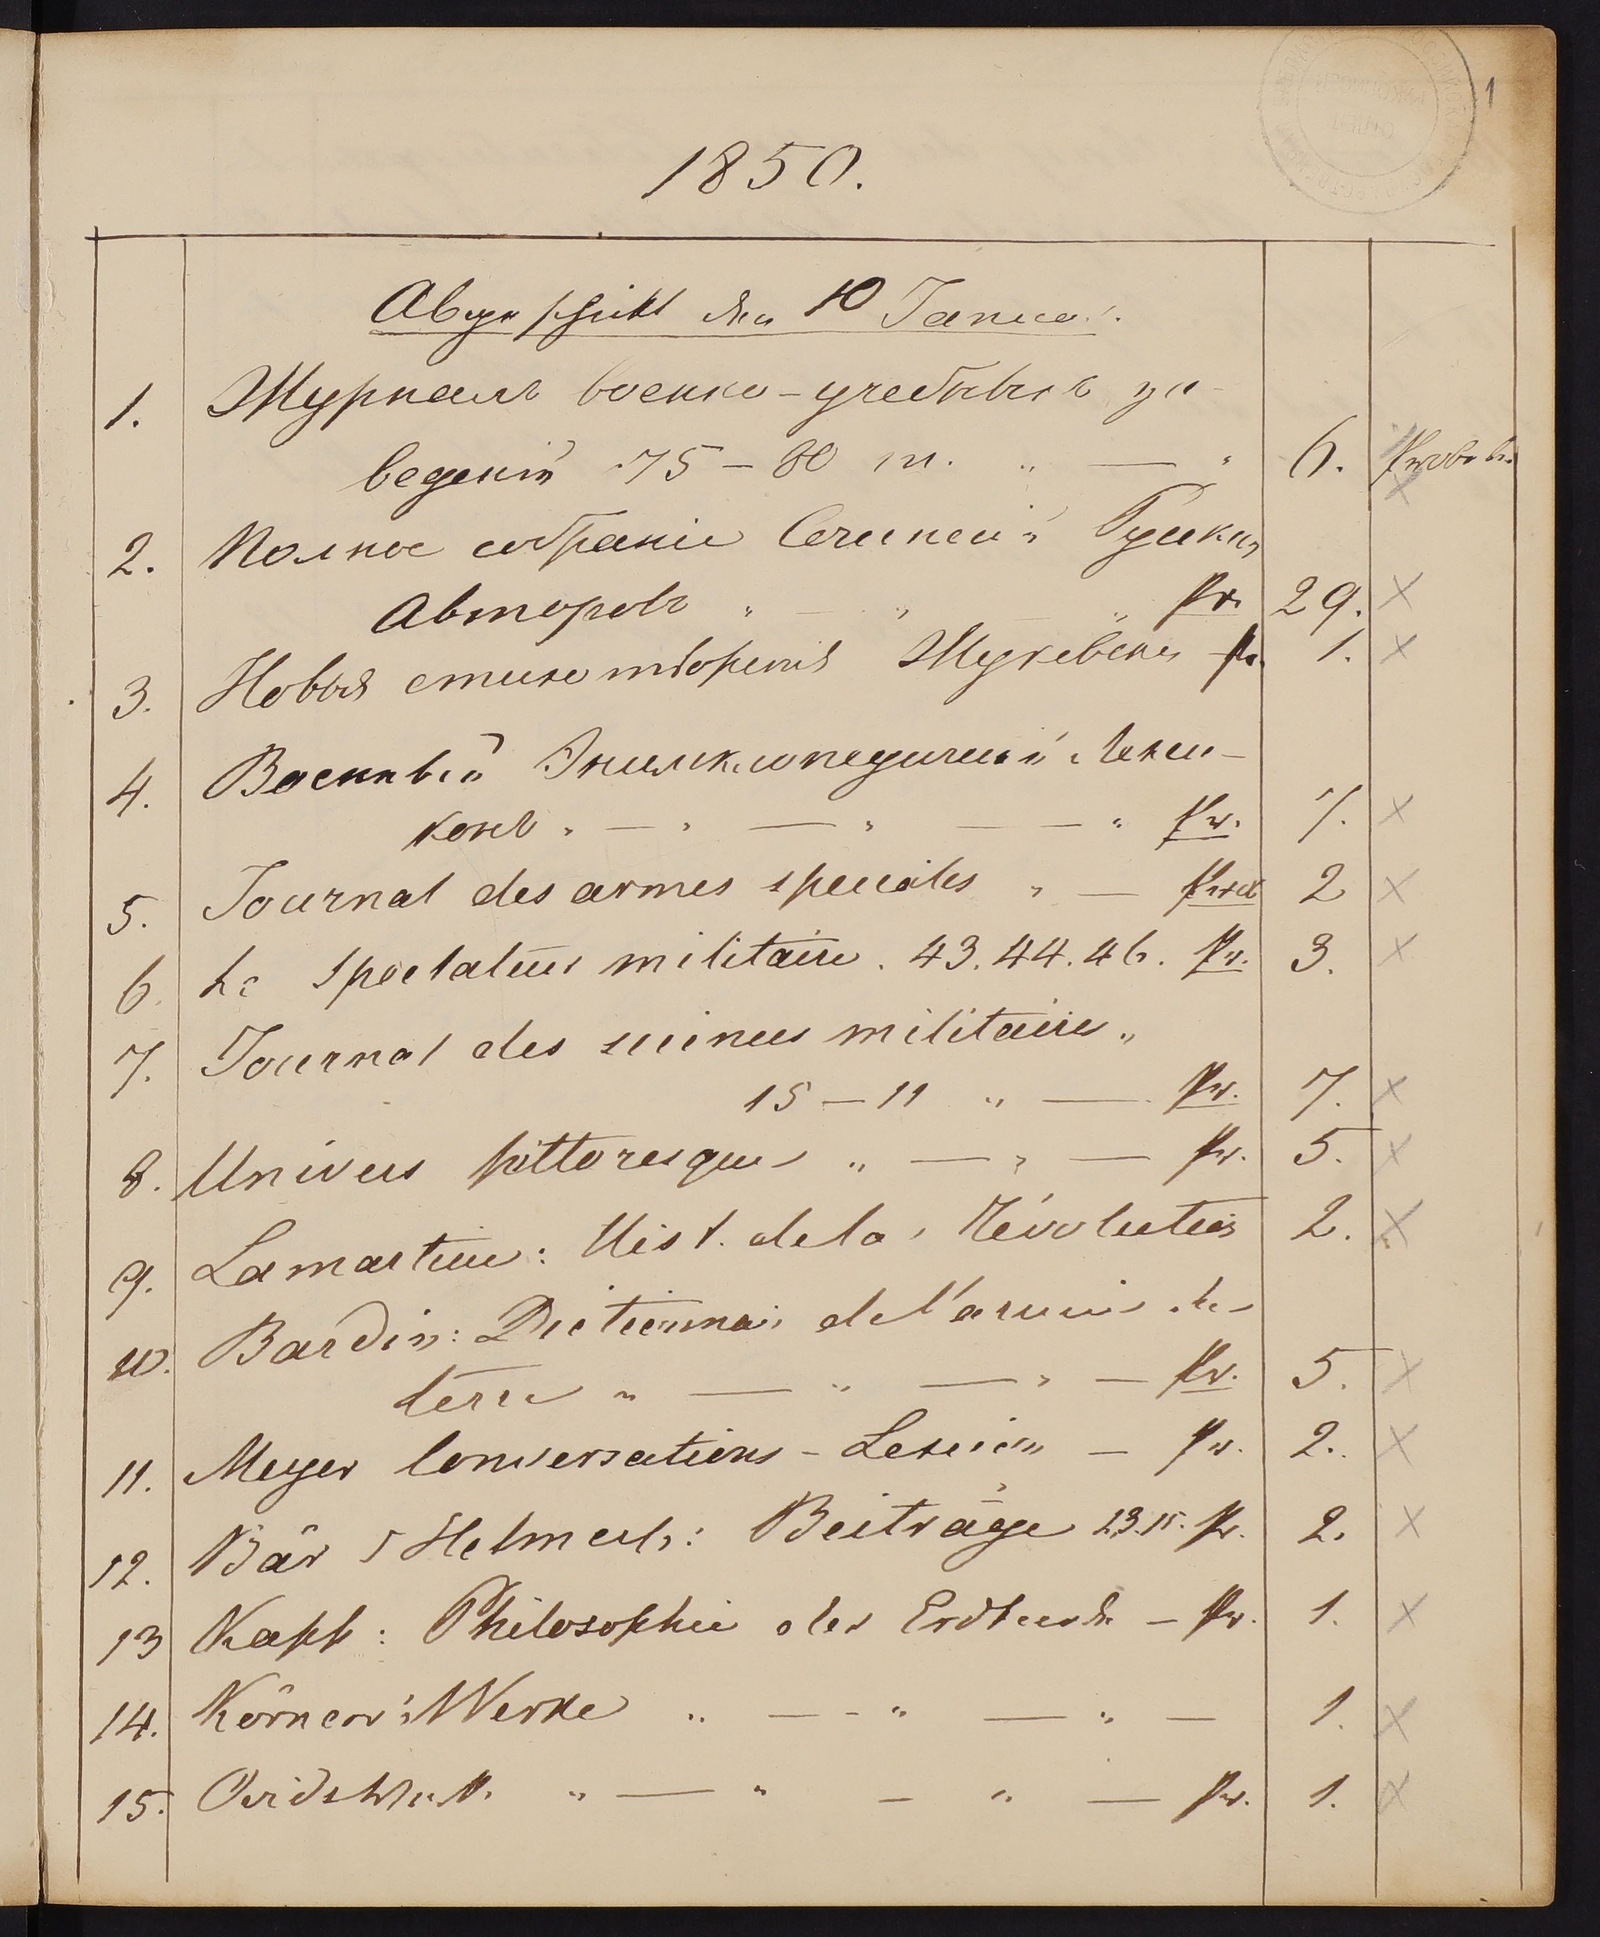 1
1850.
Abgeschickt den 10 Januar.
1. Журналъ военно-учебныхъ за-
веденій 75 – 80 т. „ — „ 6. Probebd.
2. Полное собраніе Сочиненій Русски
Авторовъ „ — „ „ Pr. 29. ×
3. Новыя стихотворенія Жуковска Pr. 1. ×
4. Военный Энциклопедическій Лекси-
конъ „ — „ — „ — — „ Pr. 7. ×
5. Journal des armes speciales „ — 2 ×
6. Le Spectateur militaire. 43. 44. 46. Pr. 3. ×
7. Journal des sciences militaires „
15 – 11 „ — Pr. 7. ×
8. Univers pittoresque „ — „ — Pr. 5. ×
9. Lamartine: Hist. de la Révolution 2. ×
10. Bardin: Dictionnair de l'armée de
terre „ — „ — „ — Pr. 5. ×
11. Meyer Conversations-Lexicon — Pr. 2. ×
12. Bär & Helmers: Beiträge 13. 15. Pr. 2. ×
13 Kapp: Philosophie der Erdkunde – Pr. 1. ×
14. Körner's Werke „ — - „ — „ — 1. ×
15. Ovids „ — „ – „ — Pr. 1. ×